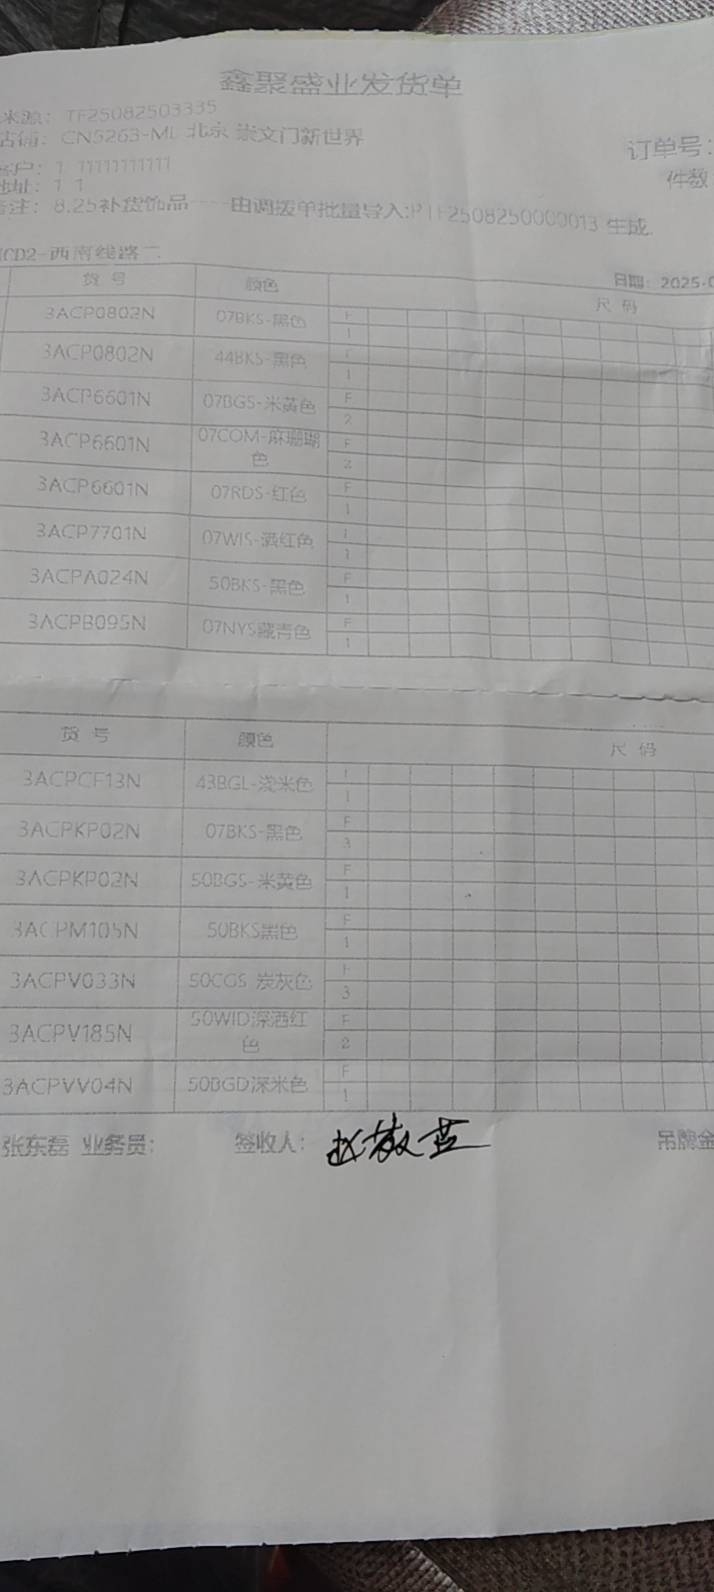 鑫聚盛业发货单
来源: TF25082503335
店铺: CN5263-ML 北京 崇文门新世界
订单号:
客户: 1 11111111111
件数
地址: 1 1
备注: 8.25补货饰品----由调拨单批量导入:PTF2508250000013 生成.
CD2-西南线路二
日期: 2025-0
货 号 颜色 尺 码
3ACP0802N 07BKS-黑色 F
1
3ACP0802N 44BKS-黑色 F
1
3ACP6601N 07BGS-米黄色 F
2
3ACP6601N 07COM-麻珊瑚色 F
2
3ACP6601N 07RDS-红色 F
1
3ACP7701N 07WIS-酒红色
1
3ACPA024N 50BKS-黑色 F
1
3ACPB095N 07NYS藏青色 F
1
货 号 颜色 尺 码
3ACPCF13N 43BGL-浅米色
1
3ACPKP02N 07BKS-黑色 F
3
3ACPKP02N 50BGS-米黄色 F
1
3ACPM105N 50BKS黑色 F
1
3ACPV033N 50CGS 炭灰色 F
3
3ACPV185N 50WID深酒红色 F
2
3ACPVV04N 50BGD深米色 F
1
张东磊 业务员: 签收人: 吊牌金